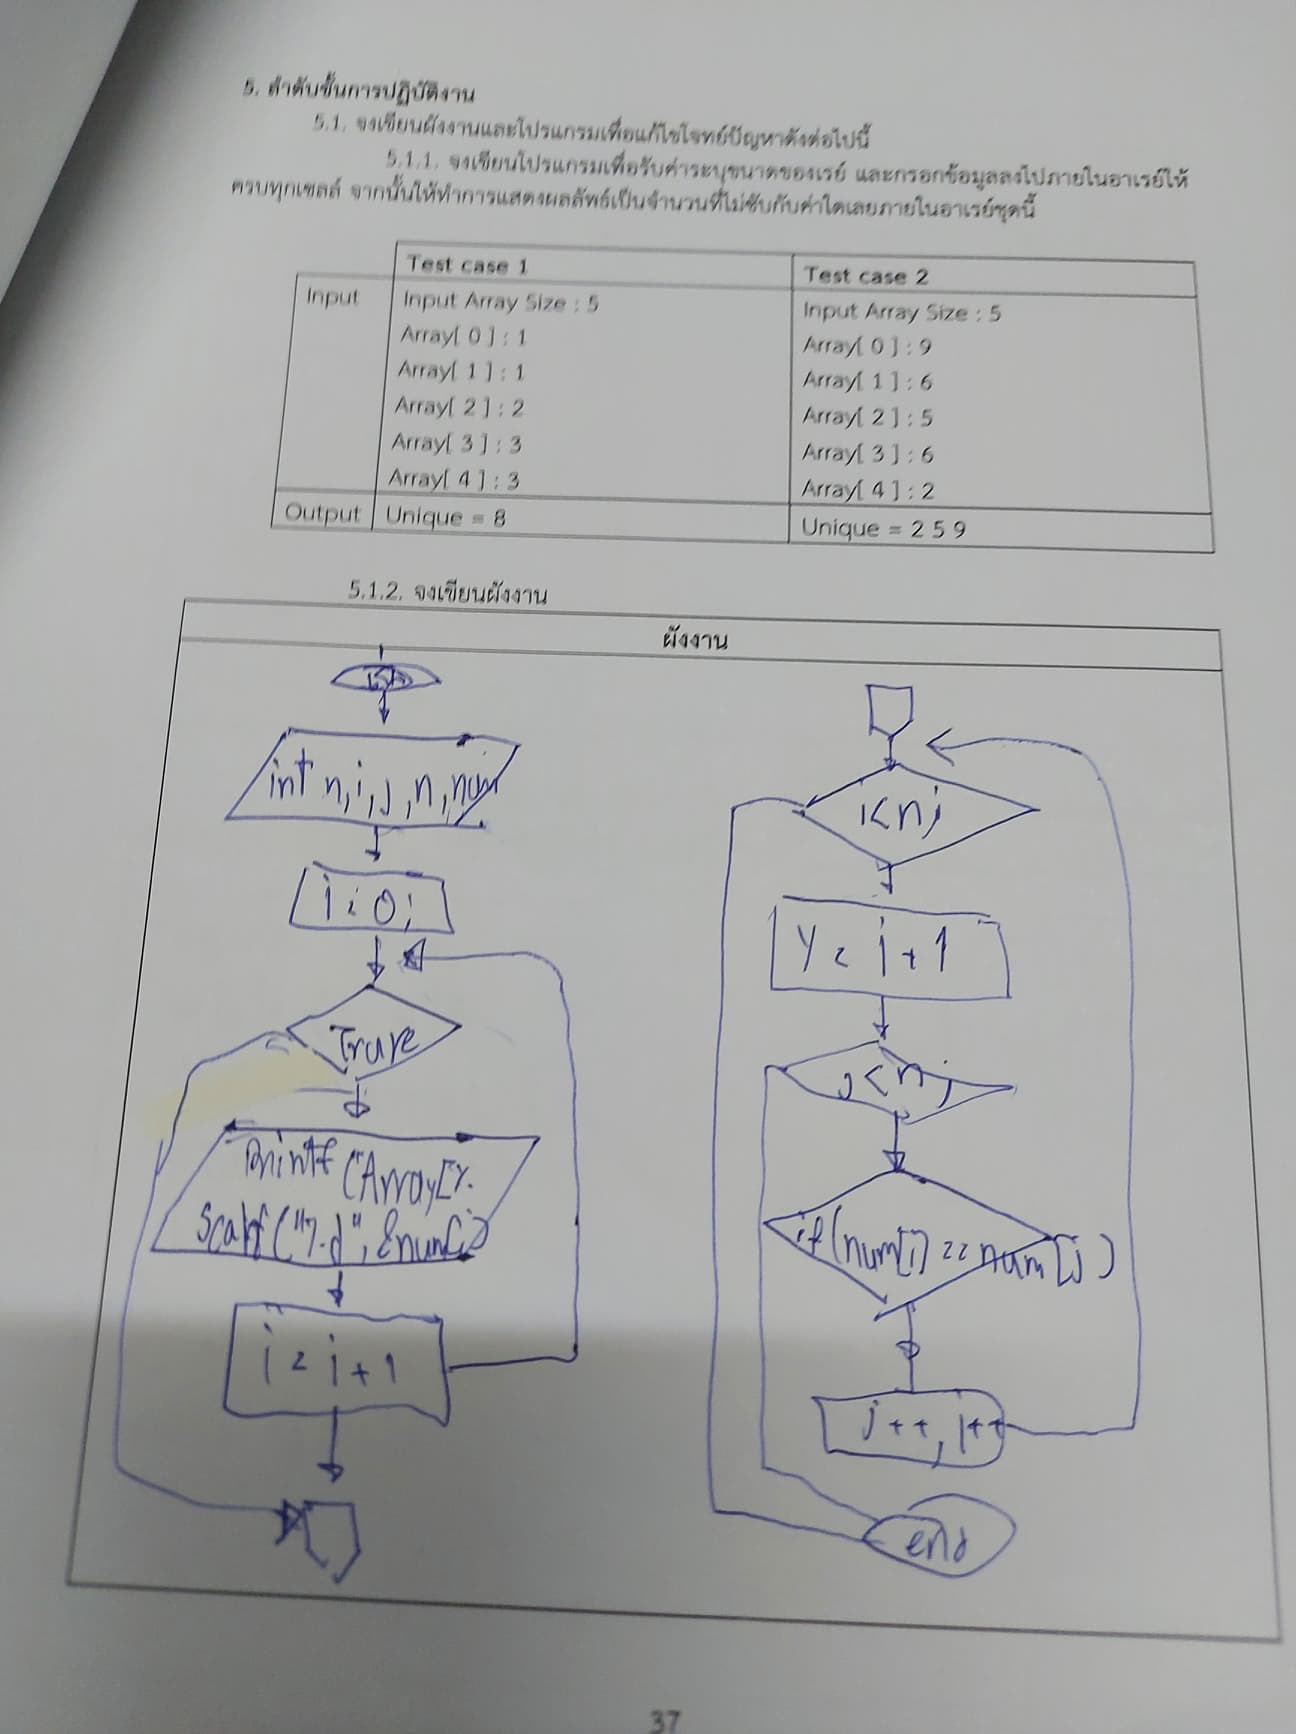 5. ลำดับขั้นการปฏิบัติงาน
5.1. จงเขียนผังงานและโปรแกรมเพื่อแก้ไขโจทย์ปัญหาดังต่อไปนี้
5.1.1. จงเขียนโปรแกรมเพื่อรับค่าระบุขนาดของเรย์ และกรอกข้อมูลลงไปภายในอาเรย์ให้
ครบทุกเซลล์ จากนั้นให้ทำการแสดงผลลัพธ์เป็นจำนวนที่ไม่ซ้ำกับค่าใดเลยภายในอาเรย์ชุดนี้
Test case 1 Test case 2
Input Input Array Size : 5 Input Array Size : 5
Array[ 0 ] : 1 Array[ 0 ] : 9
Array[ 1 ] : 1 Array[ 1 ] : 6
Array[ 2 ] : 2 Array[ 2 ] : 5
Array[ 3 ] : 3 Array[ 3 ] : 6
Array[ 4 ] : 3 Array[ 4 ] : 2
Output Unique = 8 Unique = 2 5 9
5.1.2. จงเขียนผังงาน
ผังงาน
int n,i,j,n,num
i = 0;
True
printf ("Array[%.
scanf("%d",&num[i)
i = i + 1
i<n;
y = j + 1
j<n;
if(num[i] == num[j)
j++, i++
end
37